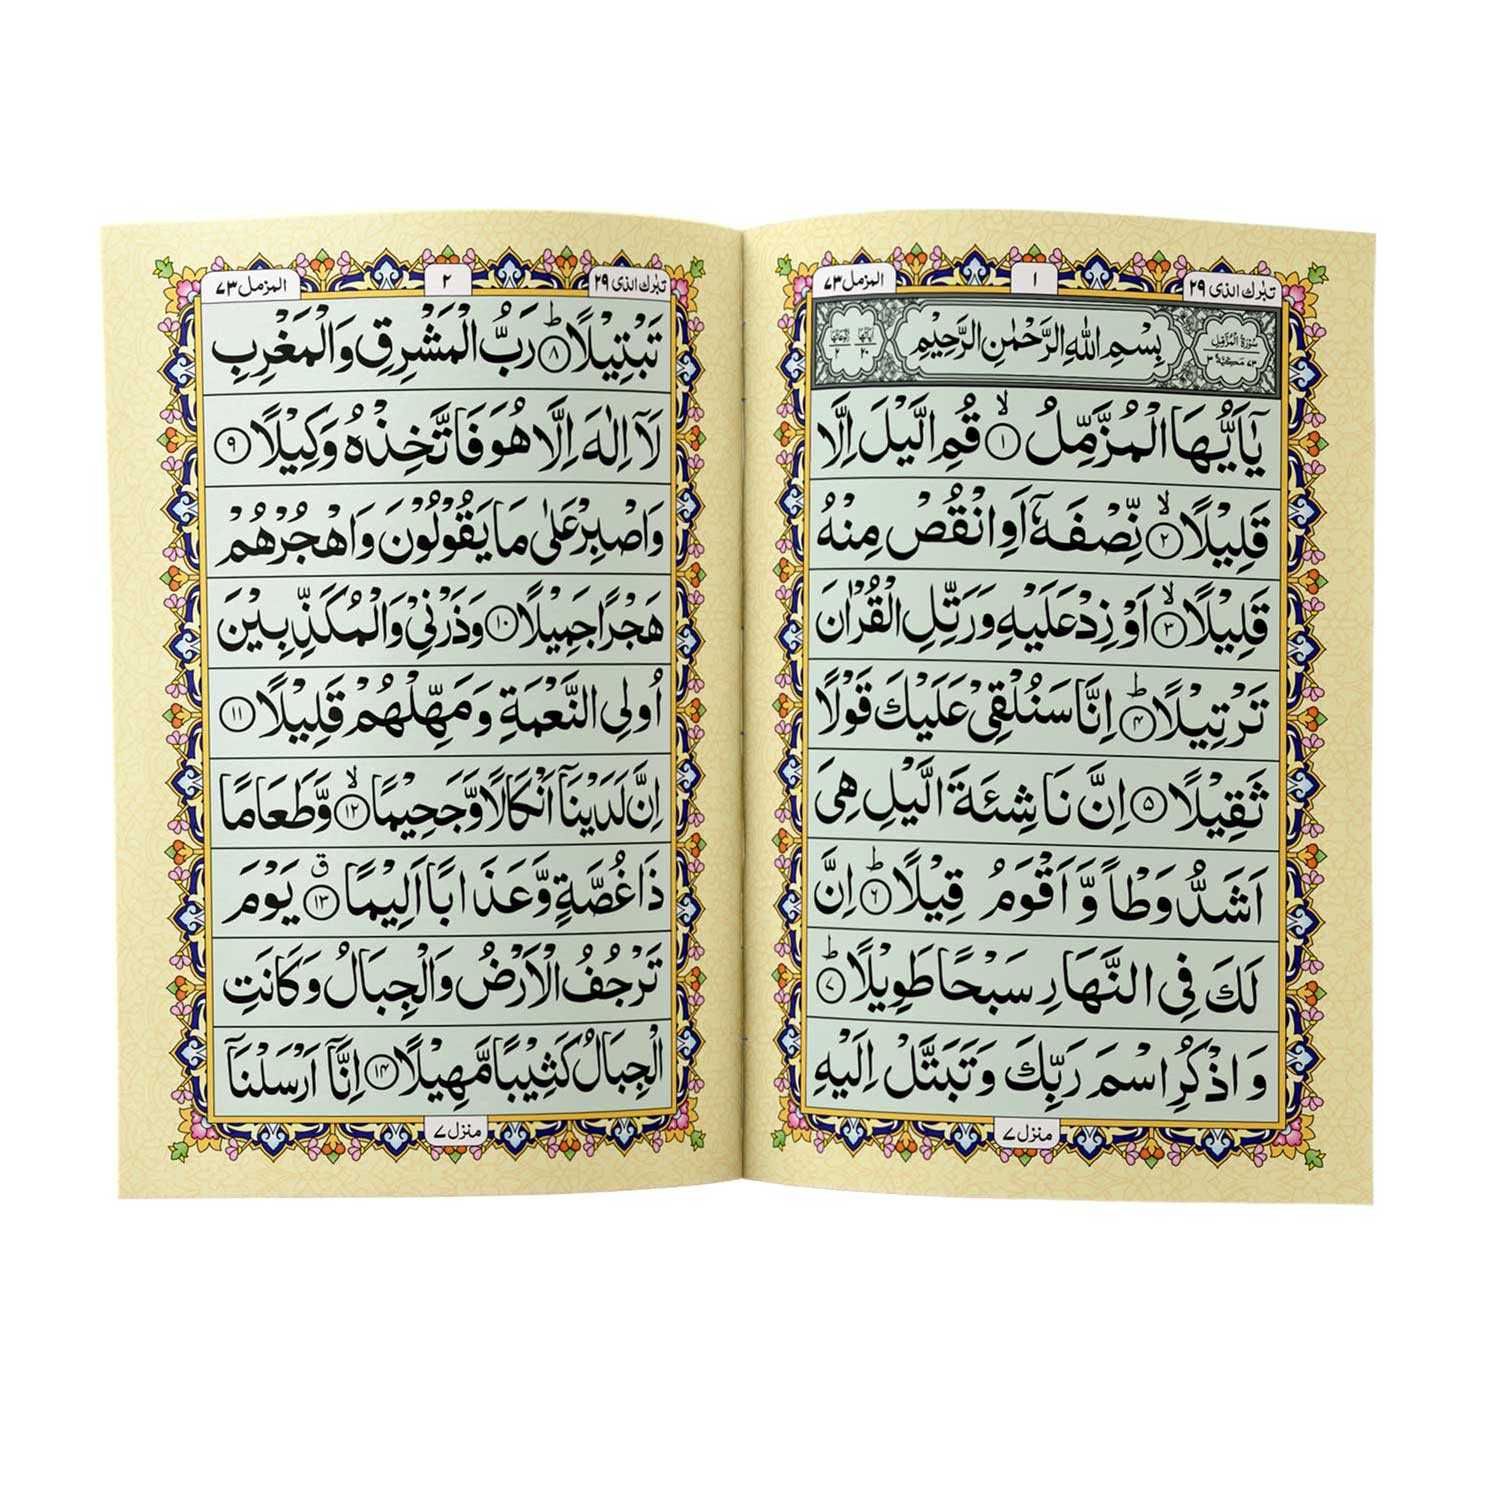 تبٰرك الذی ۲۹
۱
المزمل ۷۳
سُوْرَةُ الْمُزَّمِّلِ
۷۳ مَكِّيَّةٌ ۳
بِسْمِ اللّٰهِ الرَّحْمٰنِ الرَّحِيْمِ
اٰيَاتُهَا ۲۰
رُكُوْعَاتُهَا ۲
يٰۤاَيُّهَا الْمُزَّمِّلُ ۙ﴿۱﴾ قُمِ الَّيْلَ اِلَّا
قَلِيْلًا ۙ﴿۲﴾ نِّصْفَهٗۤ اَوِ انْقُصْ مِنْهُ
قَلِيْلًا ۙ﴿۳﴾ اَوْ زِدْ عَلَيْهِ وَرَتِّلِ الْقُرْاٰنَ
تَرْتِيْلًا ؕ﴿۴﴾ اِنَّا سَنُلْقِىْ عَلَيْكَ قَوْلًا
ثَقِيْلًا ﴿۵﴾ اِنَّ نَاشِئَةَ الَّيْلِ هِىَ
اَشَدُّ وَطْاً وَّاَقْوَمُ قِيْلًا ؕ﴿۶﴾ اِنَّ
لَكَ فِى النَّهَارِ سَبْحًا طَوِيْلًا ؕ﴿۷﴾
وَاذْكُرِ اسْمَ رَبِّكَ وَتَبَتَّلْ اِلَيْهِ
منزل ۷
تبٰرك الذی ۲۹
۲
المزمل ۷۳
تَبْتِيْلًا ؕ﴿۸﴾ رَبُّ الْمَشْرِقِ وَالْمَغْرِبِ
لَاۤ اِلٰهَ اِلَّا هُوَ فَاتَّخِذْهُ وَكِيْلًا ﴿۹﴾
وَاصْبِرْ عَلٰى مَا يَقُوْلُوْنَ وَاهْجُرْهُمْ
هَجْرًا جَمِيْلًا ﴿۱۰﴾ وَذَرْنِىْ وَالْمُكَذِّبِيْنَ
اُولِى النَّعْمَةِ وَمَهِّلْهُمْ قَلِيْلًا ﴿۱۱﴾
اِنَّ لَدَيْنَاۤ اَنْكَالًا وَّجَحِيْمًا ۙ﴿۱۲﴾ وَّطَعَامًا
ذَا غُصَّةٍ وَّعَذَابًا اَلِيْمًا ۗ﴿۱۳﴾ يَوْمَ
تَرْجُفُ الْاَرْضُ وَالْجِبَالُ وَكَانَتِ
الْجِبَالُ كَثِيْبًا مَّهِيْلًا ﴿۱۴﴾ اِنَّاۤ اَرْسَلْنَاۤ
منزل ۷